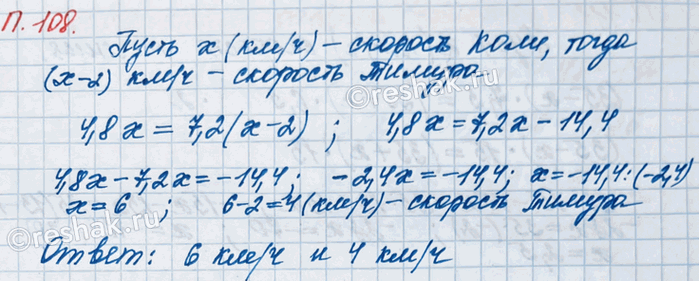 П. 108.
Пусть x (км/ч) – скорость Коли, тогда
(x-2) км/ч – скорость Тимура
4,8x = 7,2(x-2) ; 4,8x = 7,2x - 14,4
4,8x - 7,2x = -14,4; -2,4x = -14,4; x = -14,4:(-2,4)
x = 6 ; 6-2=4 (км/ч) – скорость Тимура
Ответ: 6 км/ч и 4 км/ч
©reshak.ru